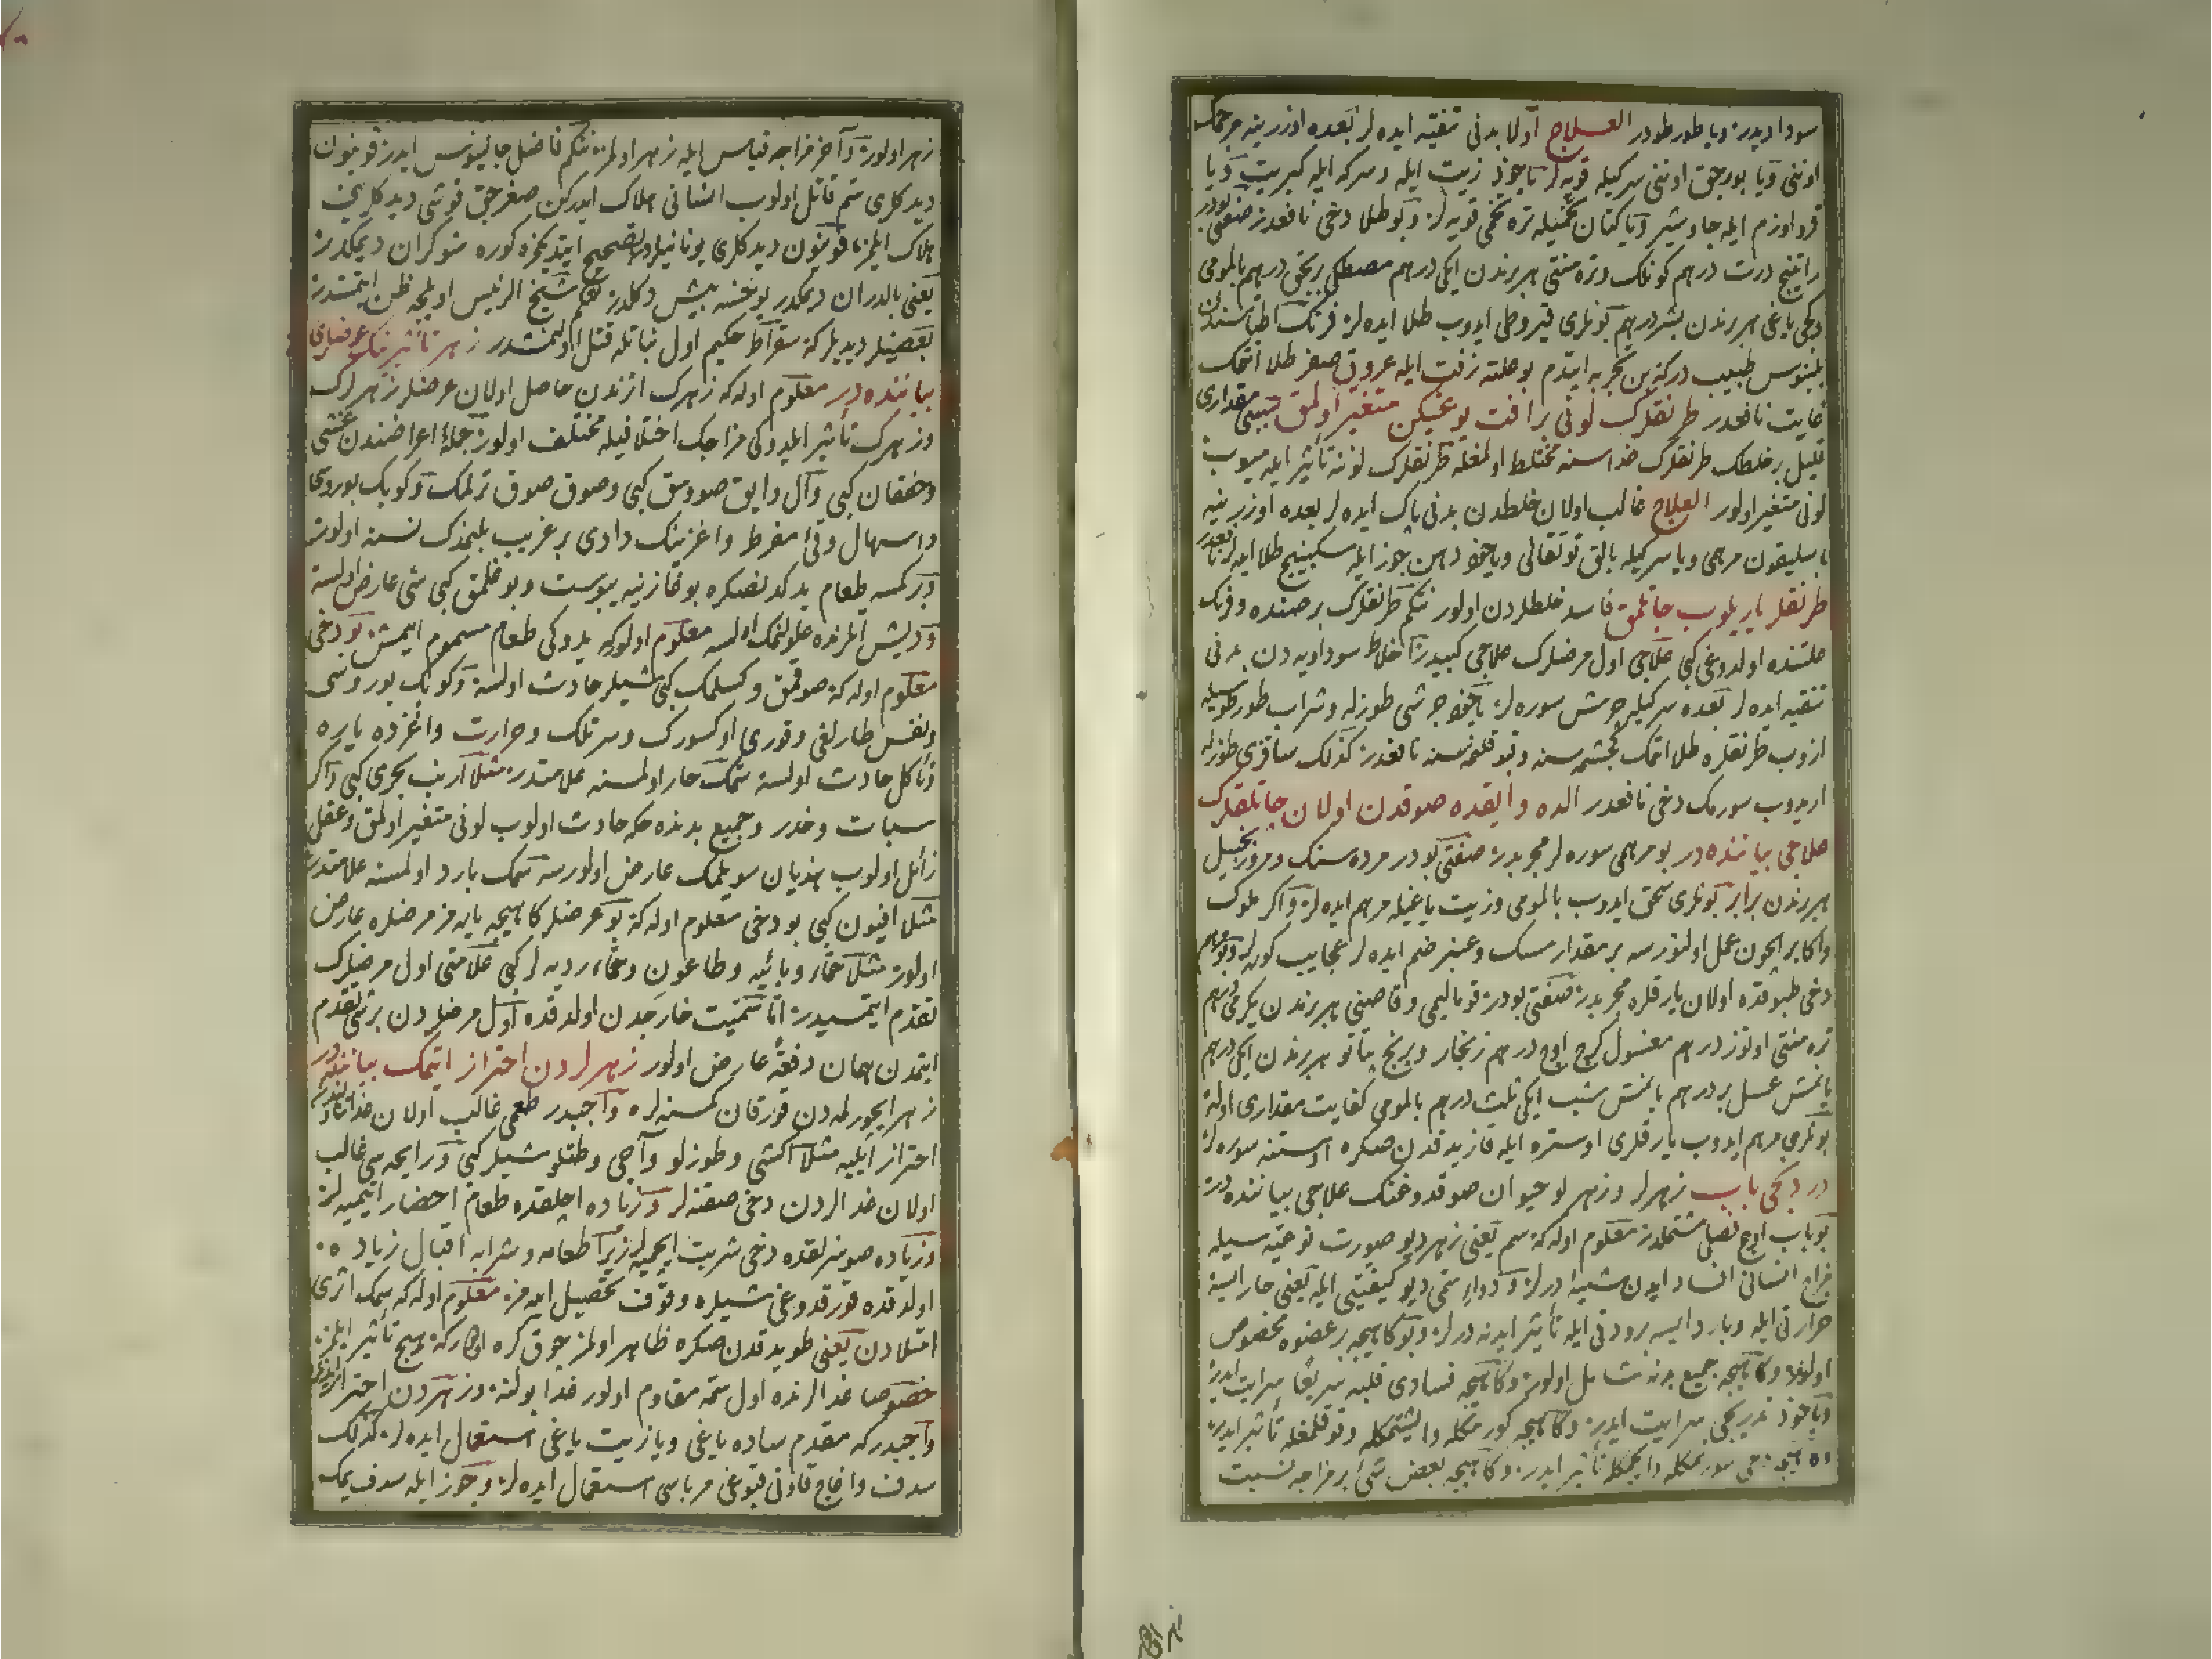 سودادیدر ویا طورطودر العلاج اولا بدنی تنقیه ایده لر بعده اوزرینه مرجمک
اوننی ویا بورجق اوننی سرکیله قویه لر یاخوذ زیت ایله وسرکه ایله کبریت ویا
ایله جاوشیر ویا کتان تخمیله تره تخمی قویه لر وبو طلا دخی نافعدر صنعتی بودر
راتینج درت درهم کونلک وتره منتی هر برندن ایکی درهم مصطکی بر بحق درهم بالمومی
دکجی یاغی هر برندن بشر درهم بونلری قیروطی ایدوب طلا ایده لر فرنک اطباسندن
طبیب درکه بن تجربه ایتدم بو علته زفت ایله عروق صفر طلا اتمک
غایت نافعدر طرنقلرک لونی برافت یوغیکن متغیر اولمق سببی مقداری
قلیل بر خلطک طرنقلرک غداسنه مختلط اولمغله طرنقلرک لوننه تأثیر ایله یوب
لونی متغیر اولور العلاج غالب اولان خلطدن بدنی پاک ایده لر بعده اوزرینه
باسلیقون مرهمی ویا سرکیله بالق توتقالی ویاخوذ دهن جوز ایله سکبینج طلا ایده لر نافعدر
طرنقلر یاریلوب چاتلمق فاسد خلطلردن اولور نتکم طرنقلرک برصنده وفرنک
علتنده اولدوغی کبی علاجی اول مرضلرک علاجی کبیدر تا اخلاط سوداویه دن بدنی
تنقیه ایده لر بعده سرکیله چرش سوره لر یاخوذ چرشی طوزله وشراب طورطوسیله
ازوب طرنقلره طلا اتمک کچشمسنه وقوقلمه سنه نافعدر کذلک ساقزی طوزله
اریدوب سورمک دخی نافعدر الده وایقده صوقدن اولان چاتلقلرک
علاجی بیاننده در بو مرهمی سوره لر مجربدر صنعتی بودر مرده سنک ومرور زنجبیل
هر برندن برابر بونلری سحق ایدوب بالمومی وزیت یاغیله مرهم ایده لر واکر ملوک
واکابر ایچون عمل اولنورسه بر مقدار مسک وعنبر ضم ایده لر عجایب کوره لر وبو مرهم
دخی طپوقده اولان یارقلره مجربدر صنعتی بودر قوبالیمی وقاصنی هر برندن یکرمی درهم
تره منتی اوتوز درهم مغسول کرج اوج درهم زنجار وبرنج هر برندن ایکی درهم
یانمش عسل بر درهم یانمش شب ایکی ثلث درهم بالمومی کفایت مقداری اوله
بونلرمی مرهم ایدوب یارقلری اوستره ایله قازیدقدن صکره اوستنه سوره لر
دردنجی باب زهرلر وزهرلو حیوان صوقدوغنک علاجی بیاننده در
بو باب اوج فصلی مشتملدر معلوم اوله که سم یعنی زهر دیو صورت نوعیه سیله
مزاج انسانی افساد ایدن شیئه درلر ودواء سمی دیو کیفیتی ایله یعنی حار ایسه
حرارتی ایله وبارد ایسه برودتی ایله تأثیر ایدنه درلر وبو کاهیجه بر عضوه مخصوص
اولور وکاهیجه جمیع بدنه شامل اولور وکاهیجه فسادی قلبه سریعا سرایت ایدر
ویاخوذ تدریجی سرایت ایدر وکاهیجه کورمکله وایشتمکله وقوقلمغله تأثیر ایدر
وکاهیجه سورتمکله وایچمکله تأثیر ایدر وکاهیجه بعض شئ بر مزاجه نسبت
زهر اولور وآخر مزاجه قیاس ایله زهر اولمز نتکم فاضل جالینوس ایدر قونیون
دیدکلری سم قاتل اولوب انسانی هلاک ایدرکن صغرجق قوشی دیدکلرینی
هلاک ایلمز قونیون دیدکلری یونانیلردن تصحیح ایتدیکمزه کوره شوکران دیمکدر
یعنی بالدران دیمکدر یوخسه بیش دکلدر نتکم شیخ الرئیس اویله ظن ایتمشدر
بعضیلر دیدیلر که سقراط حکیم اول نباتله قتل اولنمشدر زهر تأثیرینک عرضلری
بیاننده در معلوم اوله که زهرک اثرندن حاصل اولان عرضلر زهرلرک
وزهرک تأثیر ایلدوکی مزاجک اختلافیله مختلف اولور جملۀ اعراضندن غشی
وخفقان کبی وآل وایق صوومق کبی وصوق صوق ترلمک وکوبک بوروسی
واسهال وقئ مفرط واغزینک دادی بر غریب بلنمدک نسنه اولور
وبر کمسه طعام یدکدنصکره بوغازینه یبوست وبوغلمق کبی شی عارض اولسه
ودیش اتلرنده صولنمک اولسه معلوم اوله که یدوکی طعام مسموم ایمش بو دخی
معلوم اوله که صوقمق وکسلمک کبی شیلر حادث اولسه وکوبک بوروسی
ونفس طارلغی وقوری اوکسورک وسرتلک وحرارت واغزده یاره
وتأکل حادث اولسه سمک حار اولمسنه علامتدر مثلا ارنب بحری کبی واکر
سبات وخدر وجمیع بدنده حکه حادث اولوب لونی متغیر اولمق وعقلی
زائل اولوب هذیان سویلمک عارض اولورسه سمک بارد اولمسنه علامتدر
مثلا افیون کبی بو دخی معلوم اوله که بو عرضلر کاهیجه یاره مز مرضلره عارض
اولور مثلا حماء وبائیه وطاعون وحماء ردیه لر کبی علامتی اول مرضلرک
تقدم ایتمسیدر اما سمیت خارجدن اولدقده اول مرضلردن بر شی تقدم
ایتمدن همان دفعة عارض اولور زهرلردن احتراز ایتمک بیاننده در
زهر ایچورلمدن قورقان کمسنه لره واجبدر طعمی غالب اولان غدالردن
احتراز ایلیه مثلا اکشی وطوزلو وآجی وطتلو شیلر کبی ورایحه سی غالب
اولان غدالردن دخی صقنه لر وزیاده اچلقده طعام احضار ایتمیه لر
وزیاده صوسزلقده دخی شربت ایچمیه لر زیرا طعامه وشرابه اقبال زیاده
اولدقده قورقدوغی شیلره وقوف تحصیل ایده مز معلوم اوله که سمک اثری
امتلادن یعنی طویدقدن صکره ظاهر اولمز چوق کره اولور که هیچ تأثیر ایلمز
خصوصا غدالرنده اول سمه مقاوم اولور غدا بولنه وزهردن احتراز ایدنه
واجبدر که مقدم ساده یاغی ویا زیت یاغی استعمال ایده لر کذلک
سدف واغاج قاونی قبوغی مرباسی استعمال ایده لر وجوز ایله سدف یمک